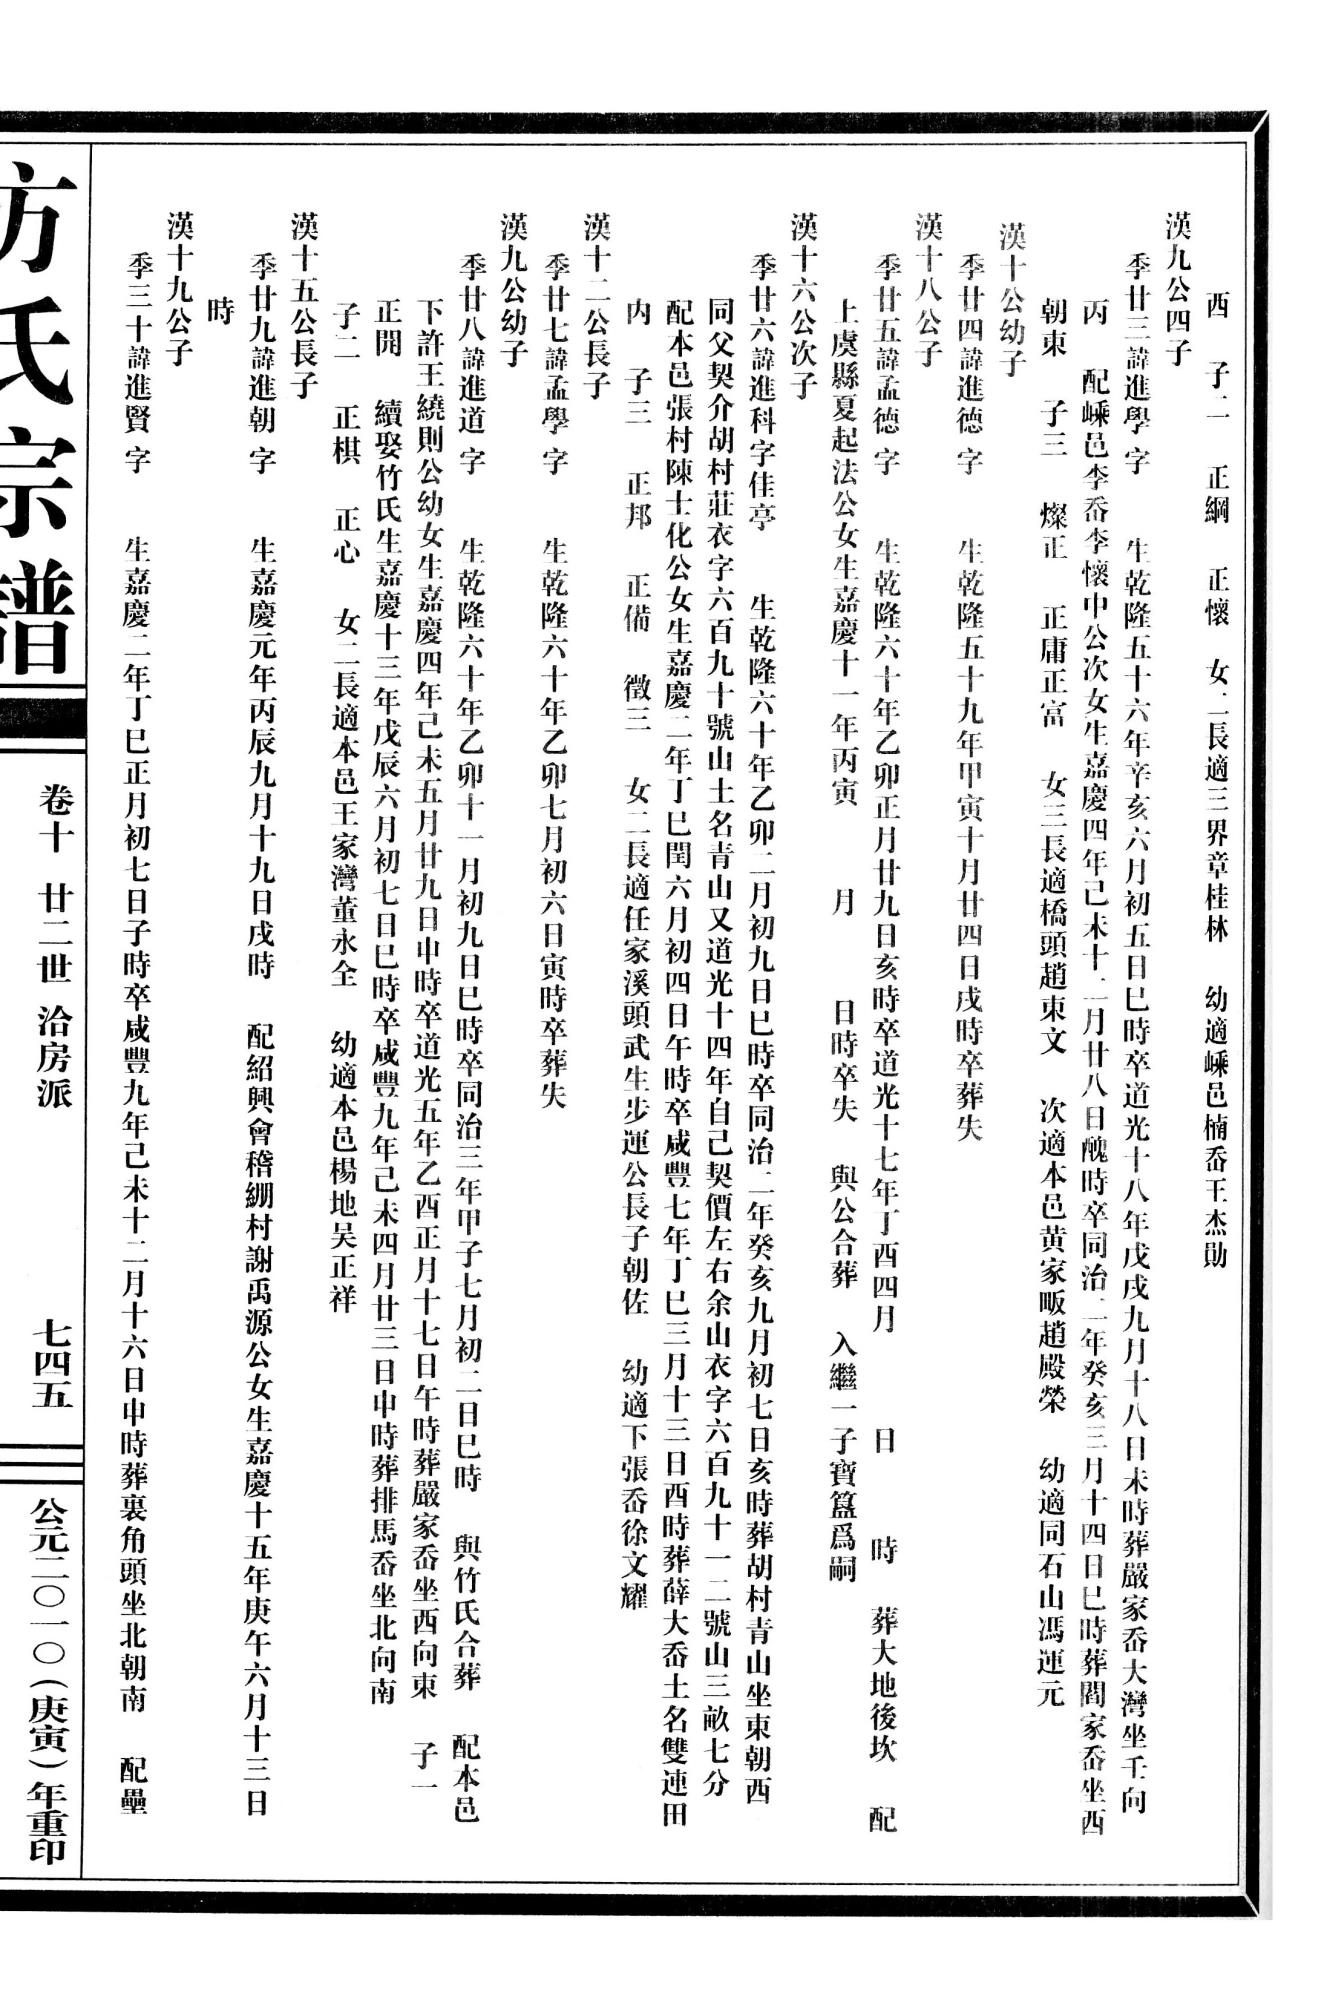 西　子二　正綱　正懷　女二長適三界章桂林　幼適嵊邑楠岙王杰勛
漢九公四子
季廿三諱進學字　生乾隆五十六年辛亥六月初五日巳時卒道光十八年戊戌九月十八日未時葬嚴家岙大灣坐壬向
丙　配嵊邑李岙李懷中公次女生嘉慶四年己未十二月廿八日醜時卒同治二年癸亥三月十四日巳時葬閻家岙坐西
朝東　子三　燦正　正庸正富　女三長適橋頭趙東文　次適本邑黃家畈趙殿榮　幼適同石山馮運元
漢十公幼子
季廿四諱進德字　生乾隆五十九年甲寅十月廿四日戌時卒葬失
漢十八公子
季廿五諱孟德字　生乾隆六十年乙卯正月廿九日亥時卒道光十七年丁酉四月　日　時　葬大地後坎　配
上虞縣夏起法公女生嘉慶十一年丙寅　月　日時卒失　與公合葬　入繼一子寶簋爲嗣
漢十六公次子
季廿六諱進科字佳亭　生乾隆六十年乙卯二月初九日巳時卒同治二年癸亥九月初七日亥時葬胡村青山坐東朝西
同父契介胡村莊衣字六百九十號山土名青山又道光十四年自己契價左右余山衣字六百九十一二號山三畝七分
配本邑張村陳士化公女生嘉慶二年丁巳閏六月初四日午時卒咸豐七年丁巳三月十三日酉時葬薛大岙土名雙連田
內　子三　正邦　正備　徵三　女二長適任家溪頭武生步運公長子朝佐　幼適下張岙徐文耀
漢十二公長子
季廿七諱孟學字　生乾隆六十年乙卯七月初六日寅時卒葬失
漢九公幼子
季廿八諱進道字　生乾隆六十年乙卯十一月初九日巳時卒同治三年甲子七月初二日巳時　與竹氏合葬　配本邑
下許王繞則公幼女生嘉慶四年己未五月廿九日申時卒道光五年乙酉正月十七日午時葬嚴家岙坐西向東　子一
正開　續娶竹氏生嘉慶十三年戊辰六月初七日巳時卒咸豐九年己未四月廿三日申時葬排馬岙坐北向南
子二　正棋　正心　女二長適本邑王家灣董永全　幼適本邑楊地吴正祥
漢十五公長子
季廿九諱進朝字　生嘉慶元年丙辰九月十九日戌時　配紹興會稽綳村謝禹源公女生嘉慶十五年庚午六月十三日
時
漢十九公子
季三十諱進賢字　生嘉慶二年丁巳正月初七日子時卒咸豐九年己未十二月十六日申時葬裏角頭坐北朝南　配壘
方氏宗譜
卷十　廿二世　洽房派　七四五
公元二〇一〇（庚寅）年重印